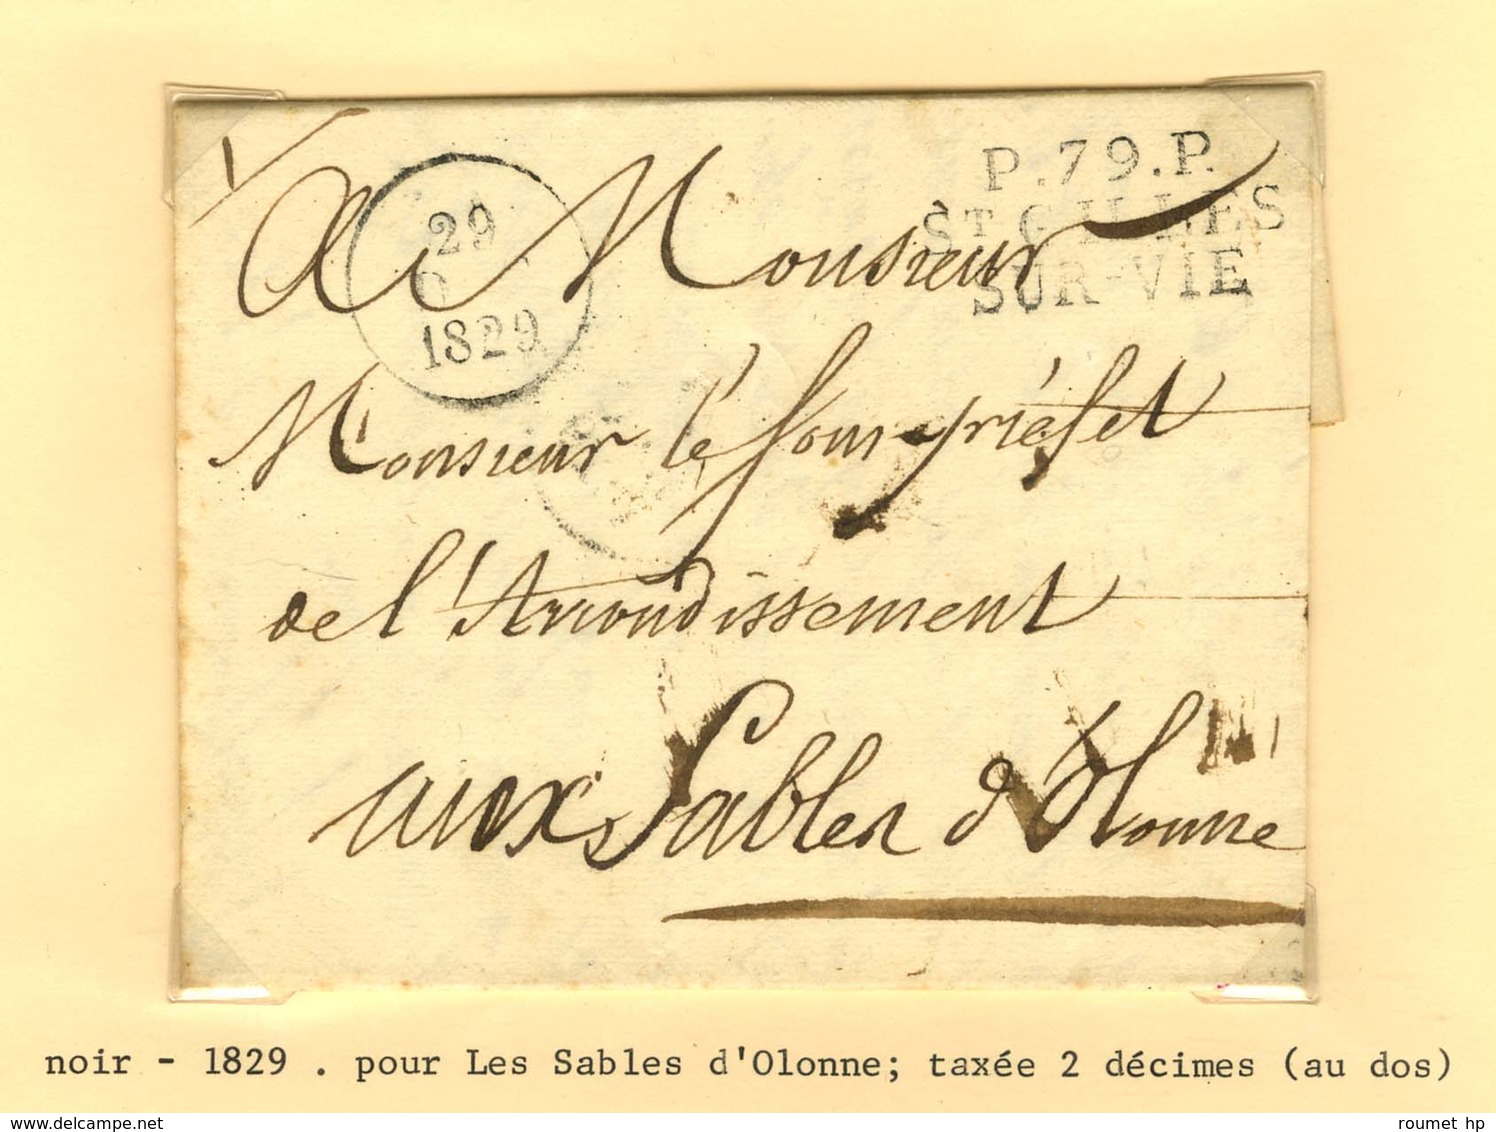 P.79.P.
ST GILLES
SUR-VIE
29
1829
A Monsieur
Monsieur le Sous-préfet
de l'Arrondissement
aux Sables d'Olonne
noir - 1829 . pour Les Sables d'Olonne; taxée 2 décimes (au dos)
www.delcampe.net
roumet hp